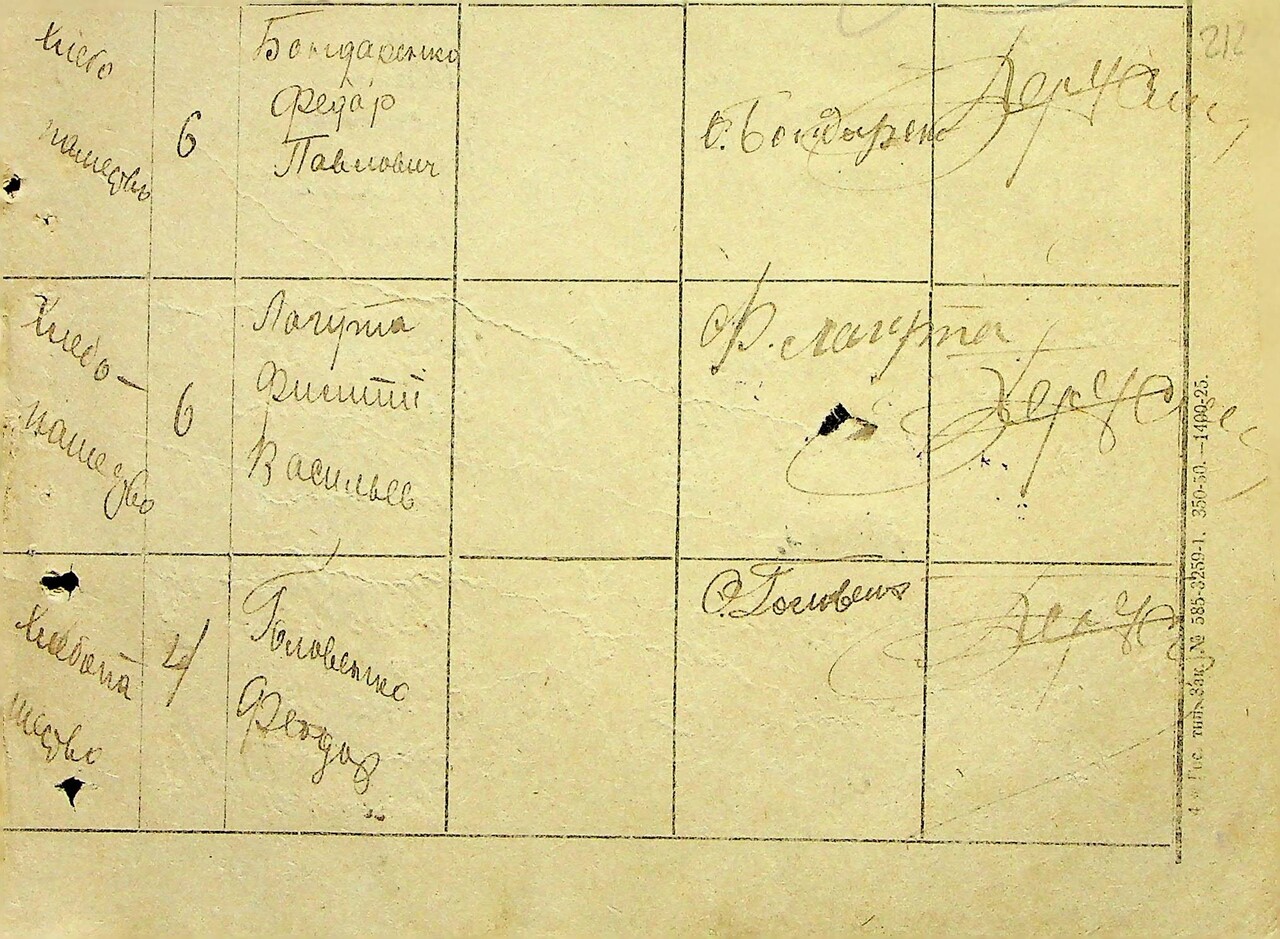 212
Хлебо
пашество
6
Бондаренко
Федар
Павлович
Ф. Бондарен
Хлебо-
пашество
6
Лагута
Филип
Васильев
Ф. Лагута
Хлебопа
шество
4
Головенко
Феодор
Ф. Головенко
4-я Гос. тип. Зак. № 585-3259-1. 350-50.—1400-25.